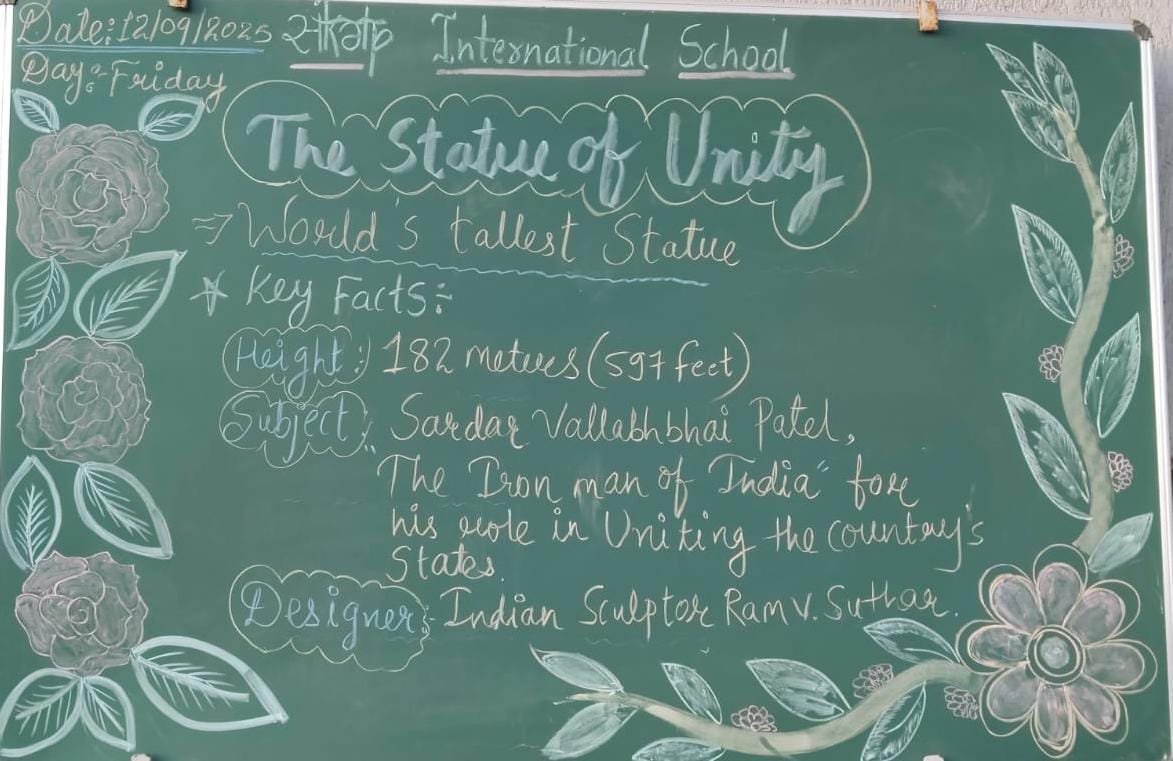 Date:12/09/2025
Day:-Friday
International School
The Statue of Unity
⇒ World's tallest Statue
☆ Key Facts:-
Height:) 182 metres (597 feet)
Subject): Sardar Vallabhbhai Patel,
"The Iron man of India" for
his role in Uniting the country's
States.
Designer:- Indian Sculptor Ram V. Suthar.